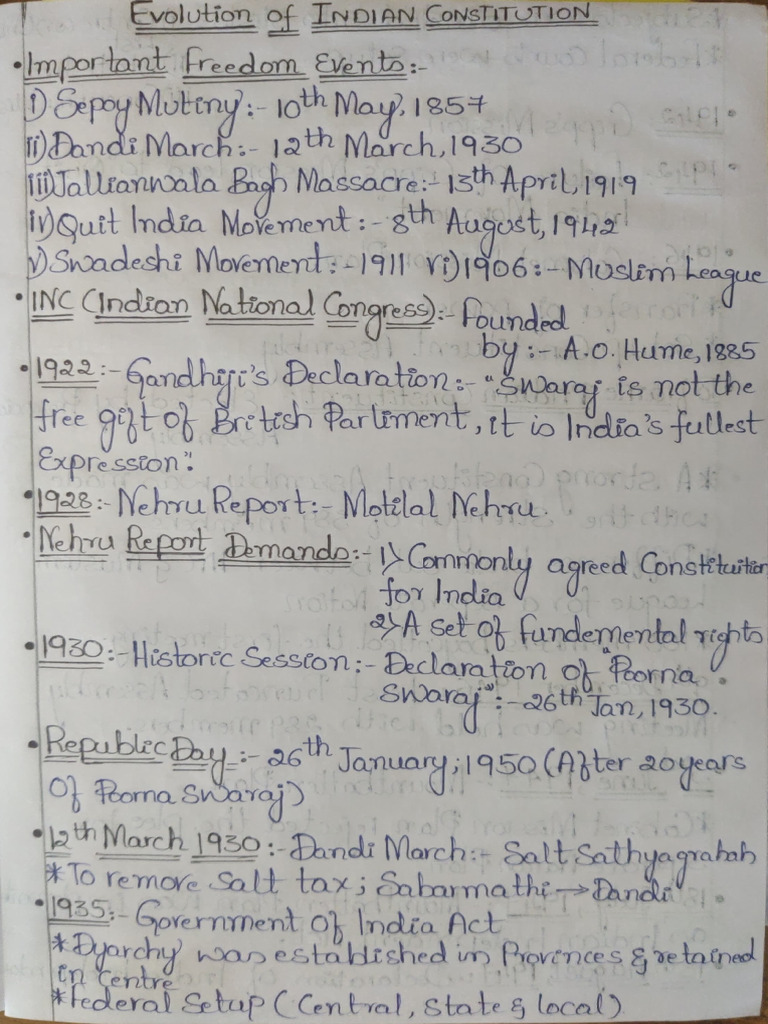 Evolution of INDIAN CONSTITUTION
• Important Freedom Events:-
i) Sepoy Mutiny:- 10th May, 1857
ii) Dandi March:- 12th March, 1930
iii) Jallianwala Bagh Massacre:- 13th April, 1919
iv) Quit India Movement:- 8th August, 1942
v) Swadeshi Movement:- 1911 vi) 1906:- Muslim League
• INC (Indian National Congress):- Founded
by:- A.O. Hume, 1885
• 1922:- Gandhiji's Declaration:- "Swaraj is not the
free gift of British Parliment, it is India's fullest
Expression".
• 1928:- Nehru Report:- Motilal Nehru.
• Nehru Report Demands:- 1) Commonly agreed Constituition
for India
2) A set of fundemental rights
• 1930:- Historic Session:- Declaration of "Poorna
Swaraj":- 26th Jan, 1930.
• Republic Day:- 26th January, 1950 (After 20 years
Of Poorna Swaraj)
• 12th March 1930:- Dandi March:- Salt Sathyagrahah
* To remove salt tax; Sabarmathi → Dandi
• 1935:- Government Of India Act
* Dyarchy was established in Provinces & retained
in Centre
* Federal Setup (Central, State & local)